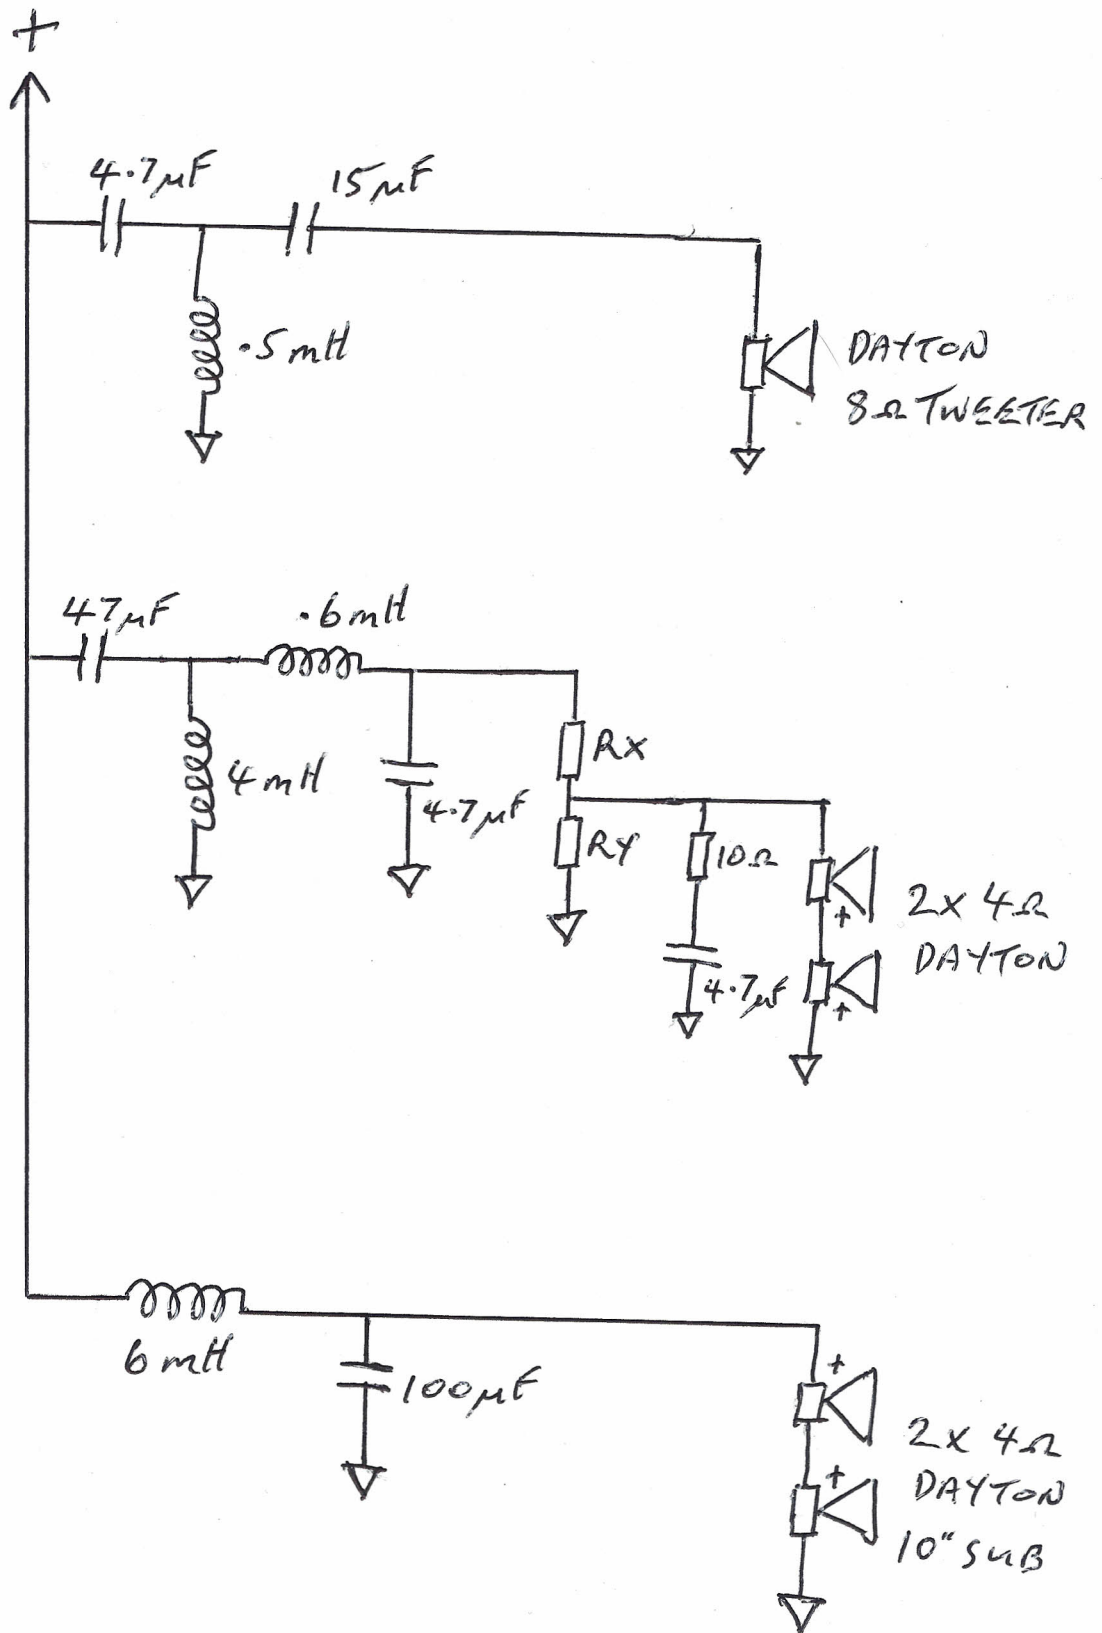 +
4.7μF
15μF
.5mH
DAYTON
8Ω TWEETER
47μF
.6mH
4mH
4.7μF
RX
RY
10Ω
4.7μF
+
+
2X 4Ω
DAYTON
6mH
100μF
+
+
2X 4Ω
DAYTON
10" SUB